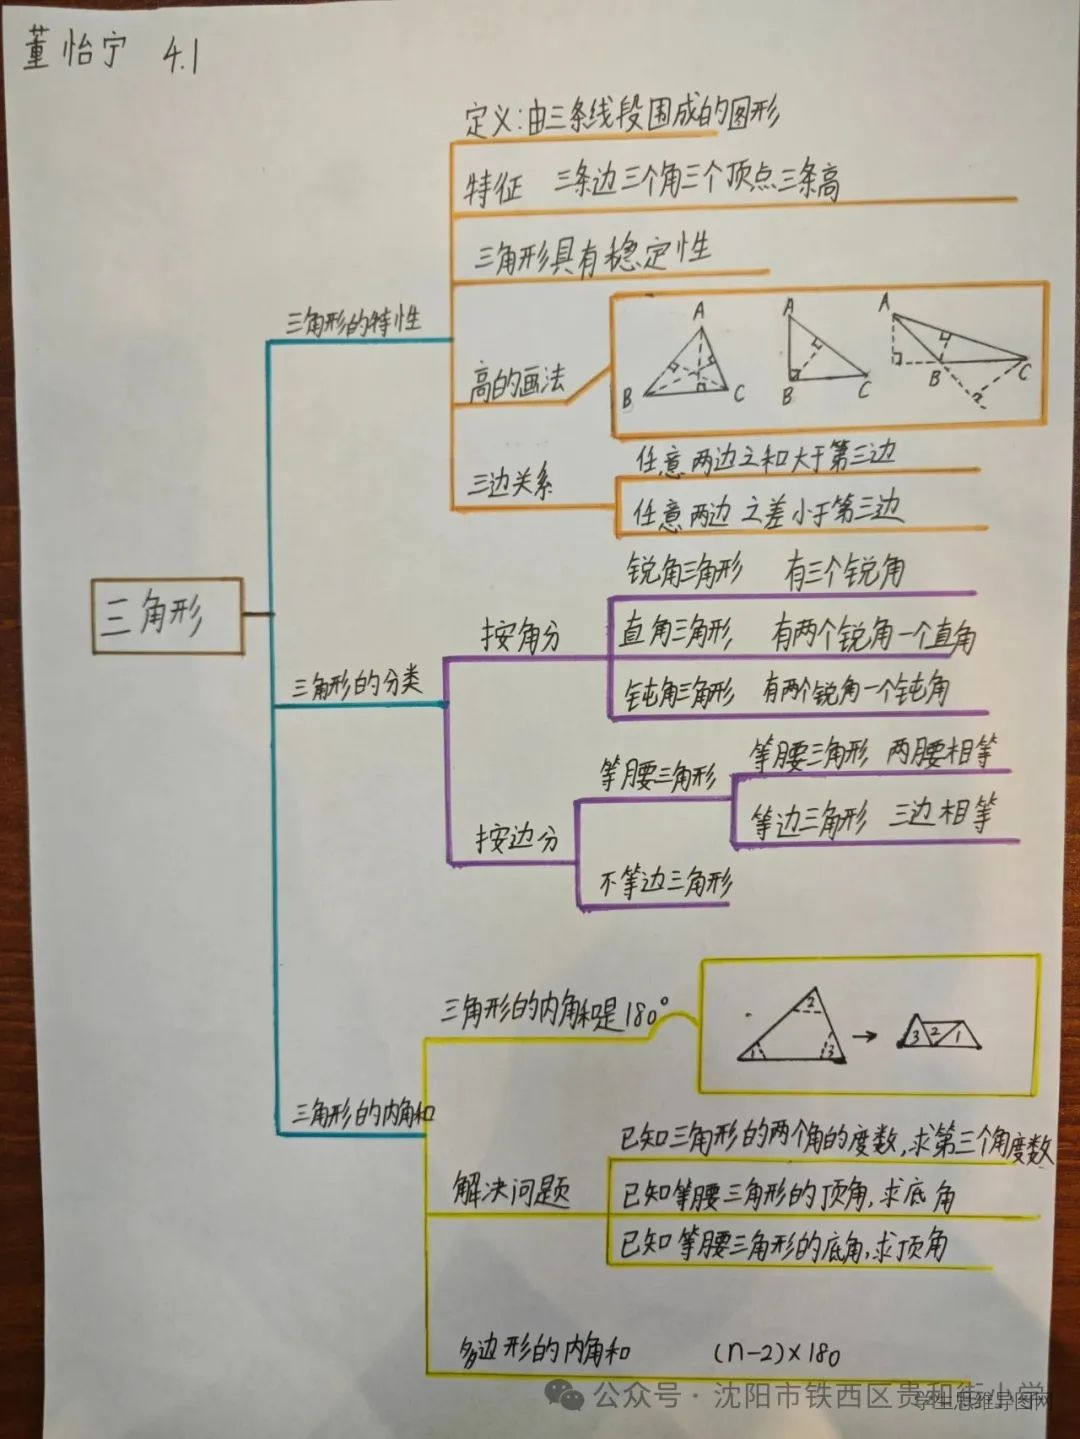 董怡宁 4.1
定义:由三条线段围成的图形
特征 三条边三个角三个顶点三条高
三角形具有稳定性
三角形的特性
高的画法
A
B
C
A
B
C
A
B
C
三边关系
任意两边之和大于第三边
任意两边之差小于第三边
三角形
三角形的分类
按角分
锐角三角形 有三个锐角
直角三角形 有两个锐角一个直角
钝角三角形 有两个锐角一个钝角
按边分
等腰三角形
等腰三角形 两腰相等
等边三角形 三边相等
不等边三角形
三角形的内角和是180°
2
1
3
→
3 2 1
三角形的内角和
解决问题
已知三角形的两个角的度数,求第三个角度数
已知等腰三角形的顶角,求底角
已知等腰三角形的底角,求顶角
多边形的内角和 (n-2)×180
公众号·沈阳市铁西区贵和街小学
学生思维导图网